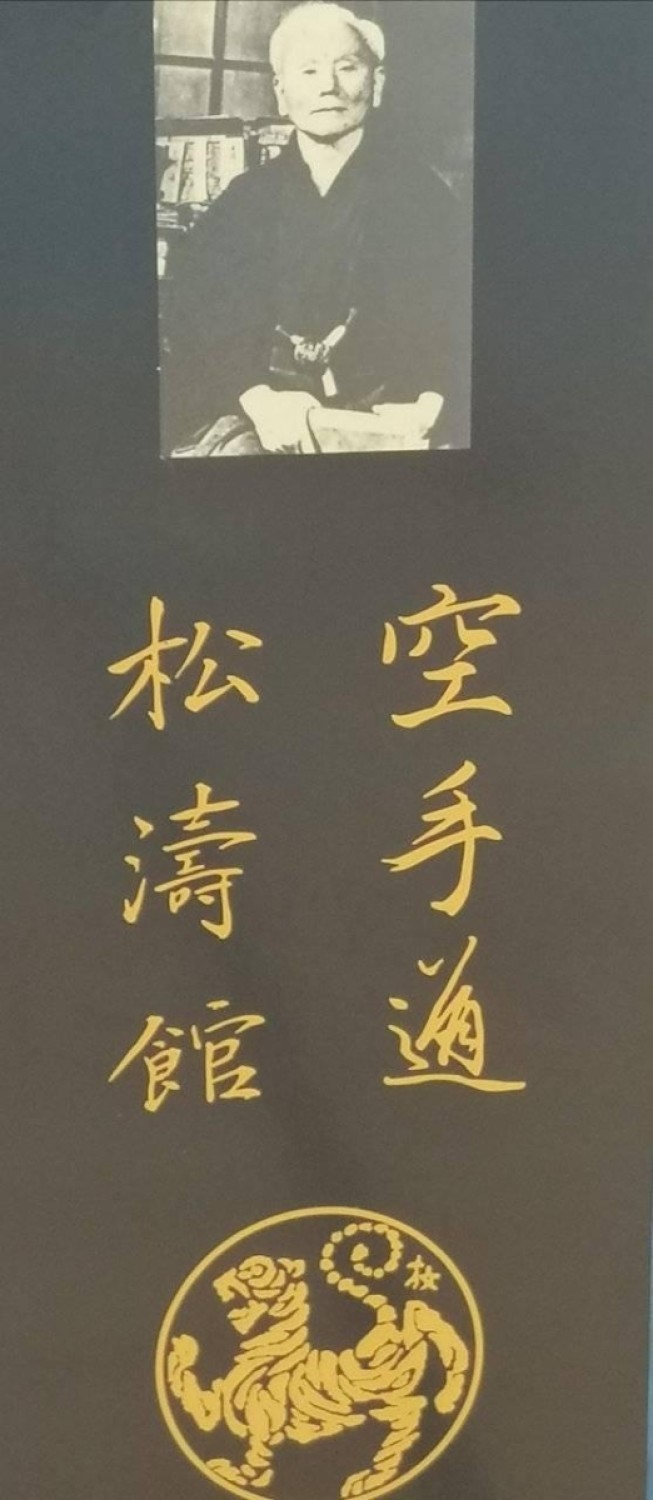 空手道
松濤館